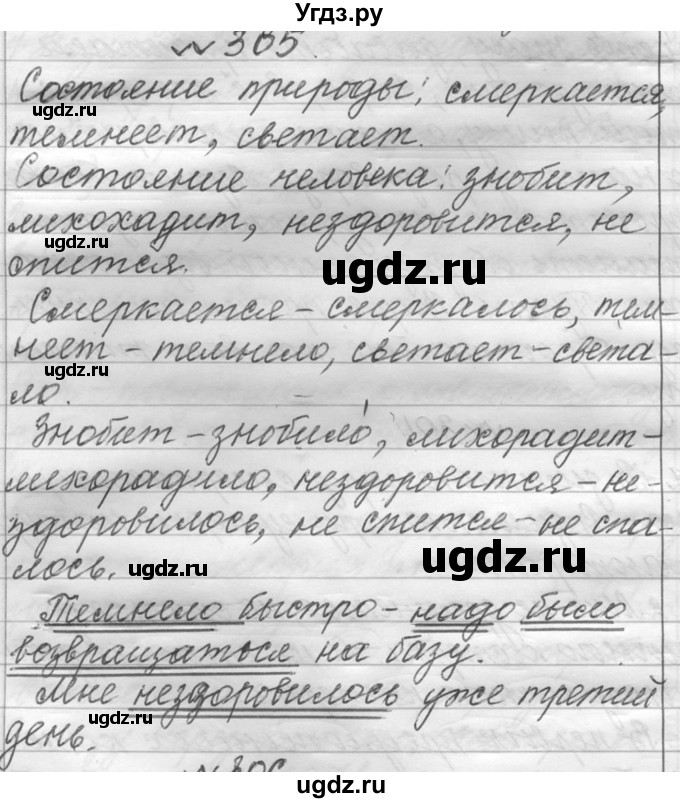 Угдз.ру
№ 305.
Состояние природы: смеркается,
ugdz.ru
темнеет, светает.
Состояние человека: знобит,
лихохадит, нездоровится, не
ugdz.ru
спится.
ugdz.ru
Смеркается – смеркалось, тем-
неет – темнело, светает – света-
ugdz.ru
ло.
Знобит – знобило, лихорадит –
лихорадило, нездоровится – не-
здоровилось, не спится – не спа-
лось.
ugdz.ru
ugdz.ru
Темнело быстро – надо было
возвращаться на базу.
Мне нездоровилось уже третий
ugdz.ru
день.
№ 306
ugdz.ru